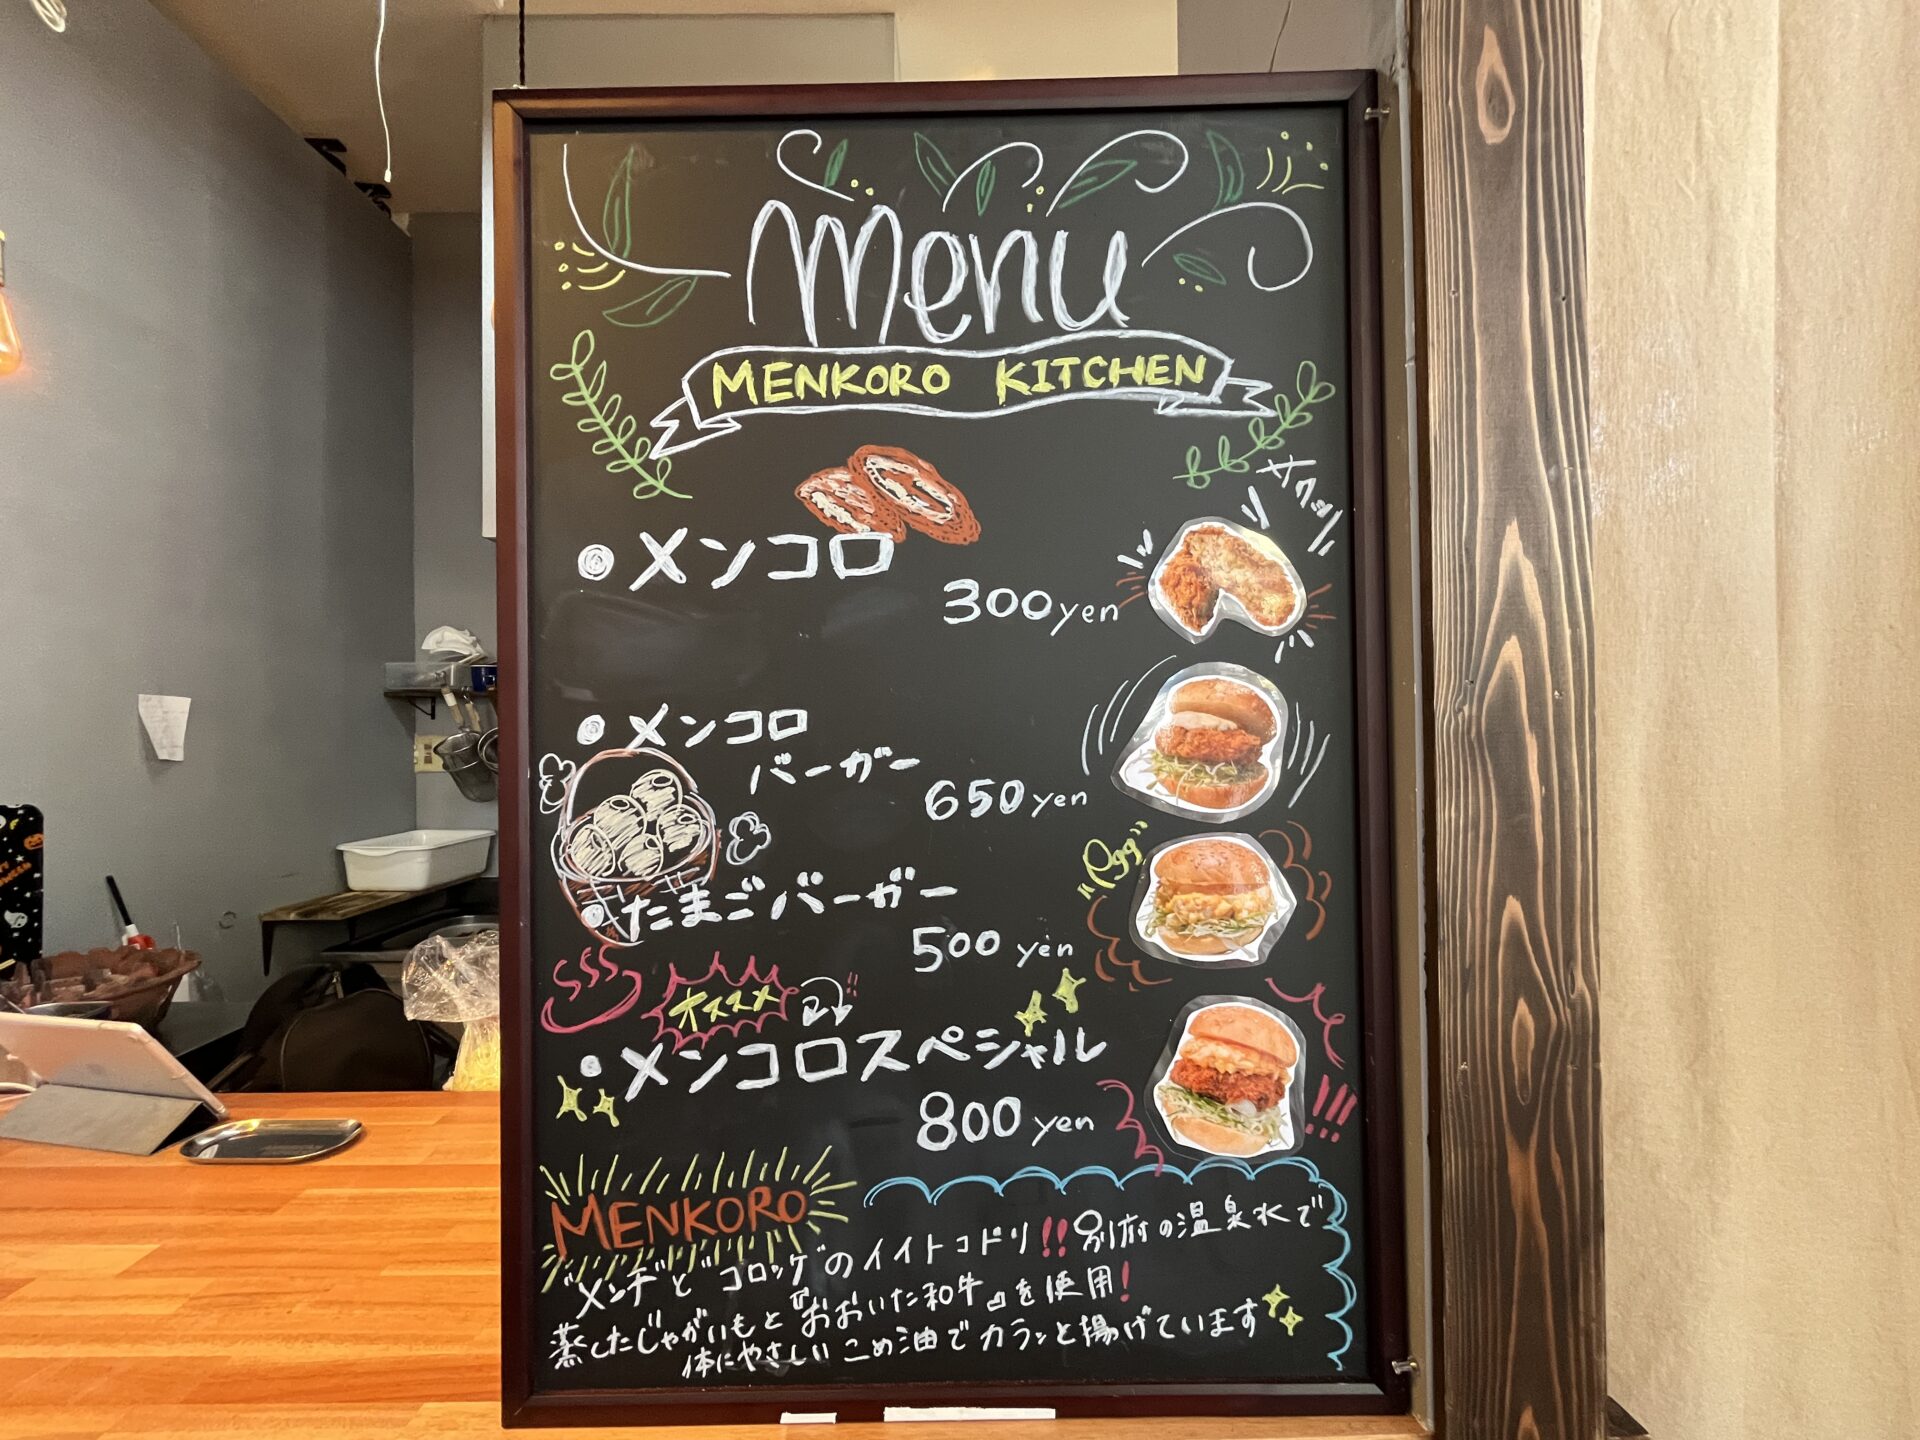 menu
MENKORO KITCHEN
サクッ
メンコロ
300yen
メンコロ
バーガー
650yen
"egg"
たまごバーガー
500 yen
オススメ
メンコロスペシャル
800 yen
!!!
MENKORO
"メンチ"と"コロッケ"のイイトコドリ!!別府の温泉水で
蒸したじゃがいもと『おおいた和牛』を使用!
体にやさしいこめ油でカラッと揚げています